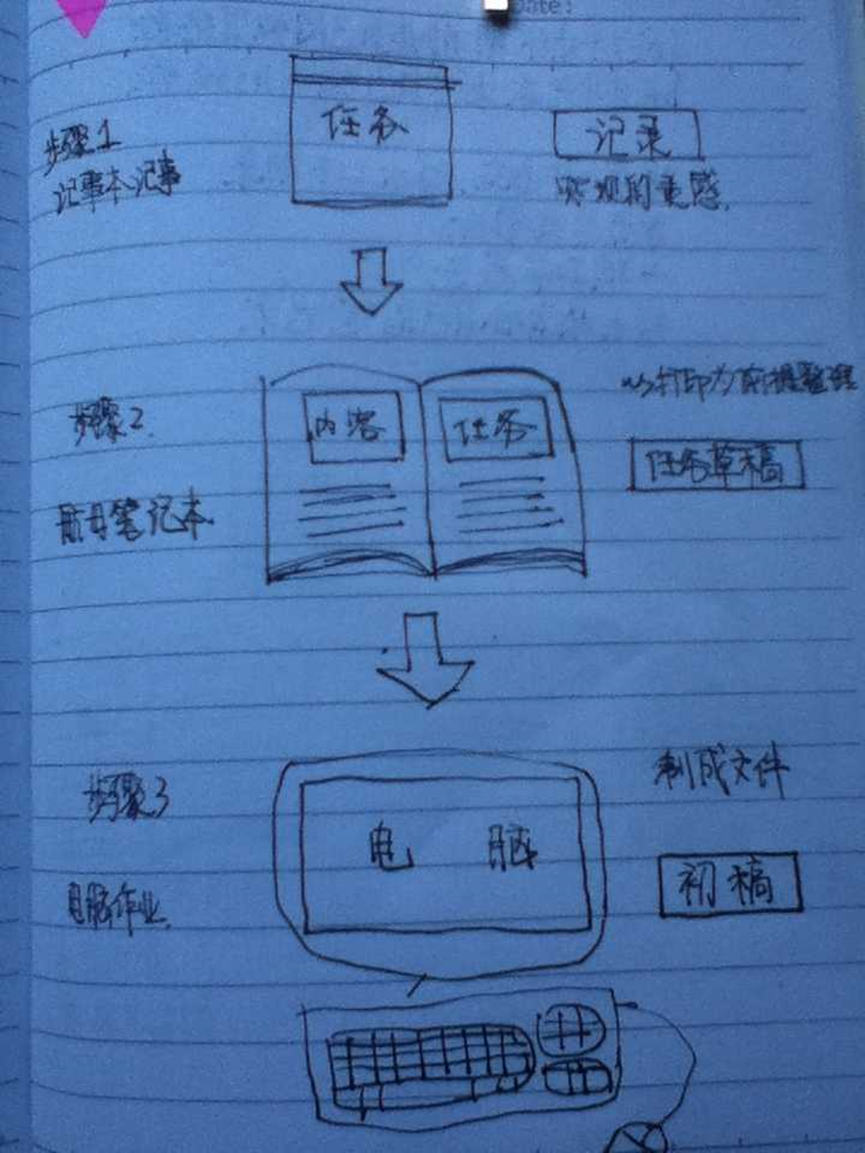 Date:
任务
步骤1
记录
记事本记事
步骤2
内容
任务
以打印为前提整理
任务草稿
航母笔记本
步骤3
制成文件
电脑
初稿
电脑作业